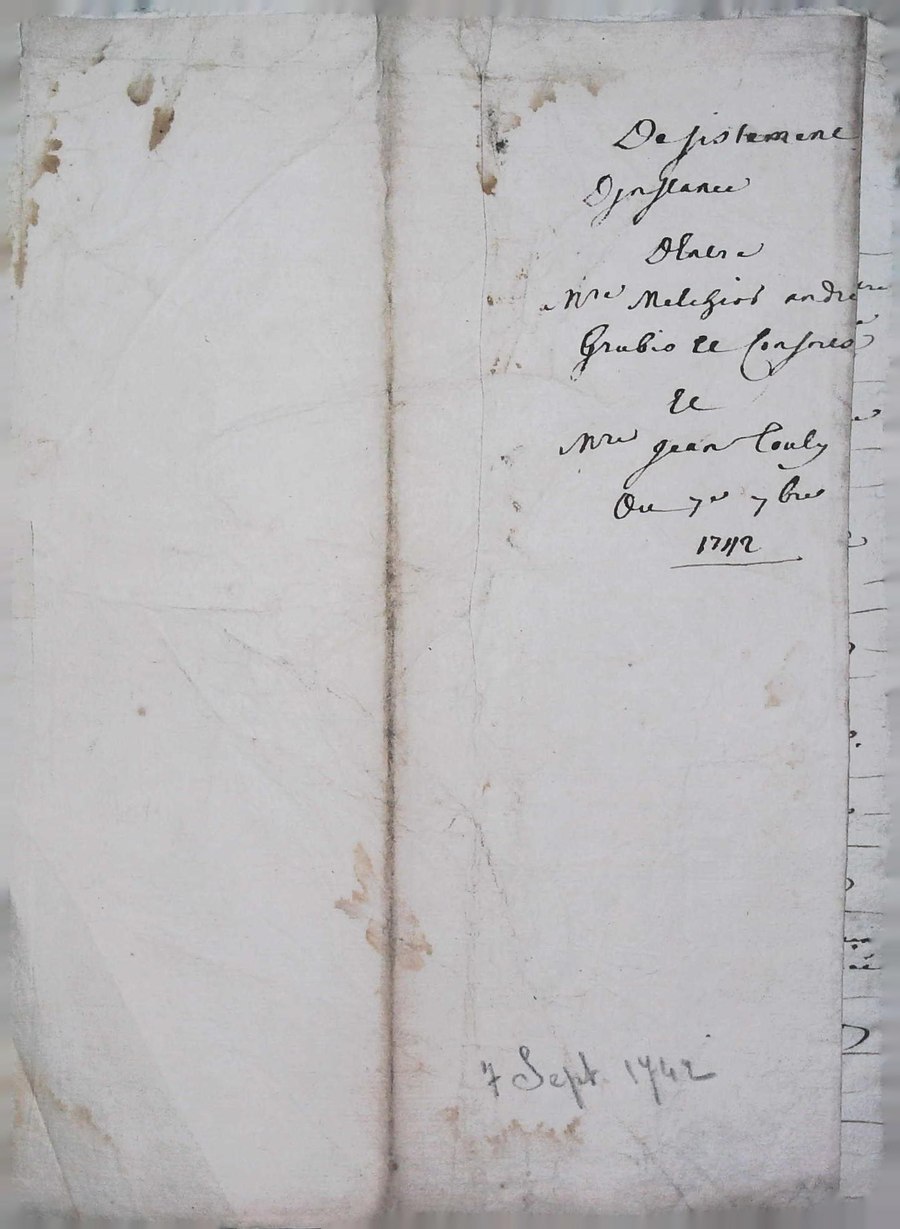 Desistement
Djnstance
Dentre
Mre Melchior andré
Grubis et Consors
et
Mre jean Couly
Du 7e 7bre
1742
7 Sept. 1742